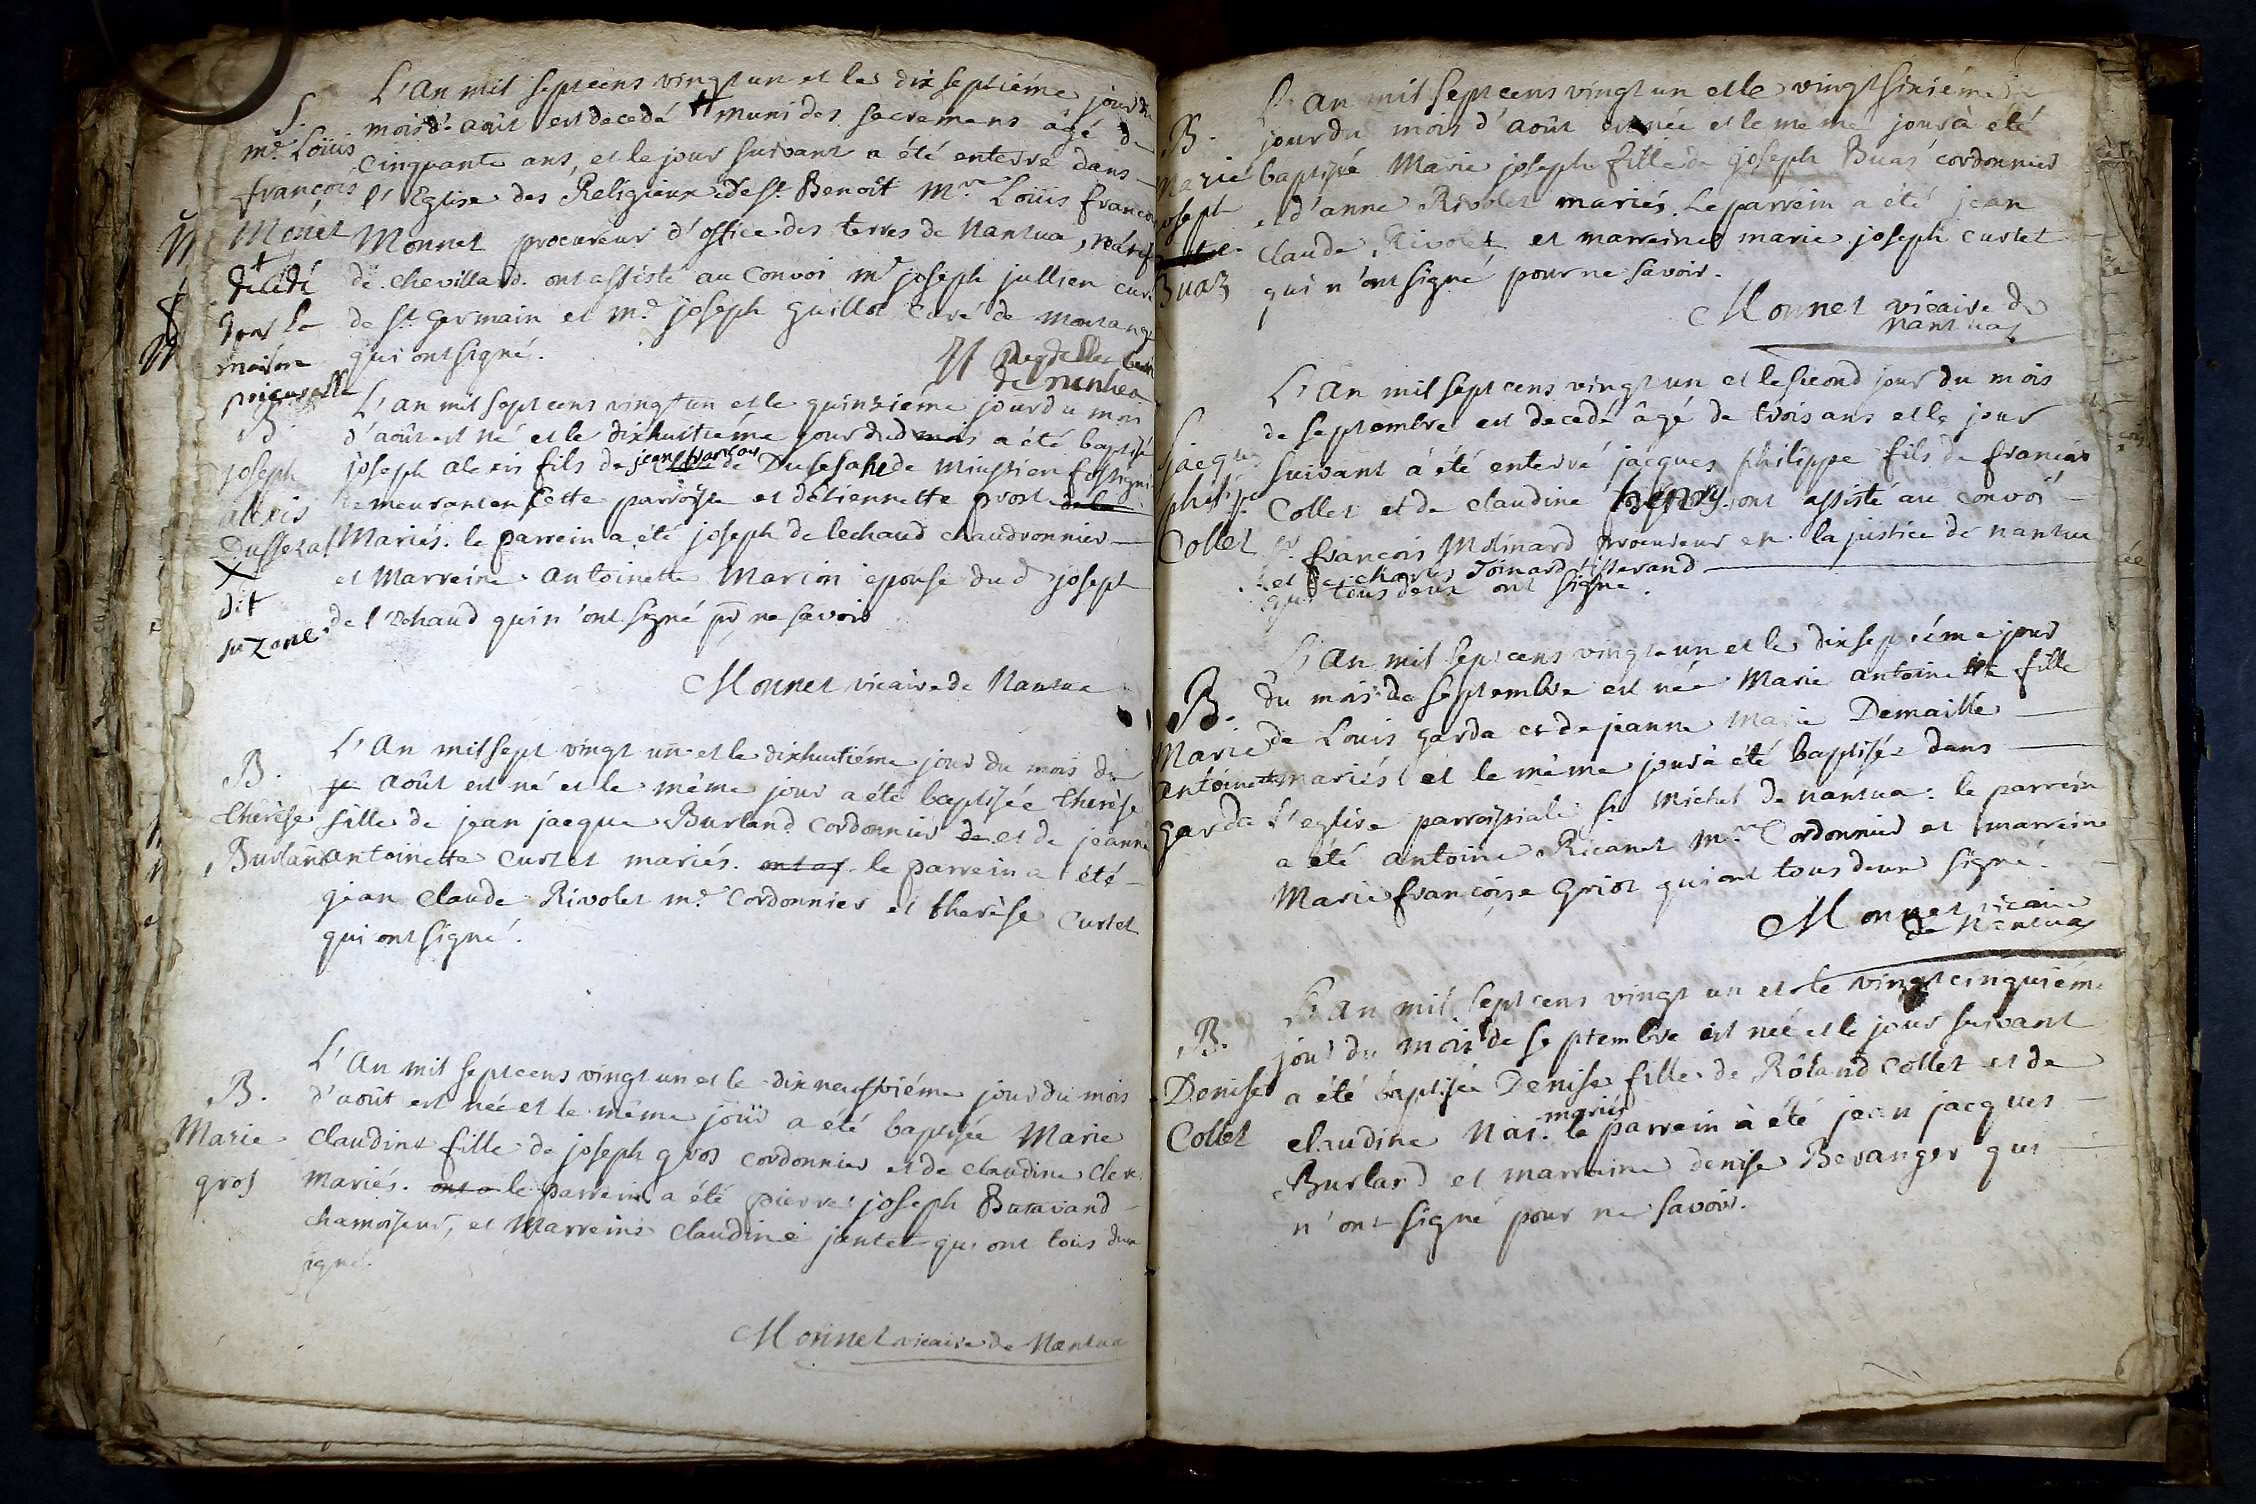 L'An mil septcens vingt un et le dix septiéme jour du
S. mois d'août est decedé muni des sacremens âgé de
mre Loüis cinquante ans, et le jour suivant a été enterré dans
françois l'Eglise des Religieux de St Benoît Mre Loüis françois
Monet Monnet procureur d'office des terres de Nantua,
decedé de chevillard. ont assisté au Convoi mre joseph jullien curé
dans la de St Germain et mre joseph Guillot Curé de
maison qui ont signé.
L'An mil septcens vingt un et le quinziéme jour du mois
B. d'août est né et le dixhuitiéme jour dud mois a été baptisé
joseph joseph alexis fils de jean françois de
alexis demeurant en Cette parroisse et
Mariés. le parrein a été joseph de lechaud chaudronnier
et Marreine Antoinette Marion epouse dud joseph
dit
de l'echaud qui n'ont signé pr ne savoir
Monnet vicaire de Nantua
L'An mil sept vingt un et le dixhuitiéme jour du mois de
B. août est né et le même jour a été baptisée therèse
therèse fille de jean jacque Burland Cordonnier de et de jeanne
Burland antoinette Curtet mariés. le parrein a été
jean Claude Rivolet mre Cordonnier et therèse Curtet
qui ont signé.
L'An mil septcens vingt un et le dix neufviéme jour du mois
B. d'août est née et le même jour a été baptisée Marie
Marie Claudine fille de joseph gros cordonnier et de claudine Clerc
gros Mariés. le parrein a été pierre joseph
chamoiseur, et Marreine Claudine jantet qui ont tous deux
signé.
Monnet vicaire de Nantua
L'An mil septcens vingt un et le vingt sixiéme
B. jour du mois d'août est née et le même jour à été
Marie baptisée Marie joseph fille de joseph Buaz cordonnier
joseph et d'anne Rivolet mariés. Le parrein a été jean
claude Rivolet et marreine marie joseph curtet
Buaz qui n'ont signé pour ne savoir.
Monnet vicaire de
Nantua
L'An mil septcens vingt un et le second jour du mois
de septembre est decedé âgé de trois ans et le jour
jacques suivant à été enterré jacques philippe fils de françois
philipe Collet et de claudine henry. ont assisté au convoi
Collet Sr françois Molinard procureur en la justice de nantua
et charles Toinard tisserand
qui tous deux ont signé.
L'An mil septcens vingt un et le dix septiéme jour
B. du mois de septembre est née Marie antoinette fille
Marie de Louis garda et de jeanne Marie Demaille
antoinette mariés et le même jour à été baptisée dans
garda l'eglise parroissiale St Michel de nantua. le parrein
a été antoine Ricanet Mre Cordonnier et marreine
Marie françoise Griot qui ont tous deux signé.
Monnet vicaire
de Nantua
L'An mil septcens vingt un et le vingtcinquiéme
B. jour du mois de septembre est née et le jour suivant
Denise a été baptisée Denise fille de Roland Collet et de
mariés
Collet claudine Nai. le parrein à été jean jacques
Burland et marreine denise Beranger qui
n'ont signé pour ne savoir.